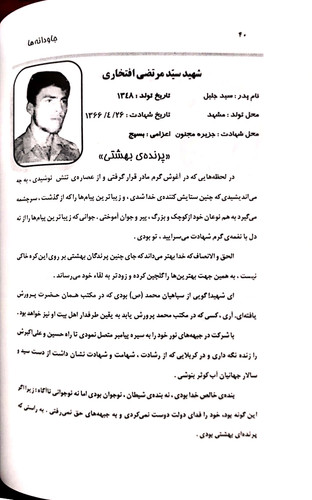 ۴۰
جاودانه‌ها
شهید سیّد مرتضی افتخاری
نام پدر : سید جلیل
تاریخ تولد : ۱۳۴۸
محل تولد : مشهد
تاریخ شهادت : ۱۳۶۶/۴/۲۶
محل شهادت : جزیره مجنون
اعزامی : بسیج
«پرنده‌ی بهشتی»
در لحظه‌هایی که در آغوش گرم مادر قرار گرفتی و از عصاره‌ی تنش نوشیدی ، به چه
می‌اندیشیدی که چنین ستایش کننده‌ی خدا شدی ، و زیباترین پیام‌ها را که از گذشت ، سرچشمه
می‌گیرد به هم نوعان خود ازکوچک و بزرگ ، پیر و جوان آموختی . جوانی که زیباترین پیام‌ها را از ته
دل با نغمه‌ی گرم شهادت می‌سرایید . تو بودی .
الحق و الانصاف که خدا بهتر می‌داند که جای چنین پرندگان بهشتی بر روی این کره خاکی
نیست . به همین جهت بهترین‌ها را گلچین کرده و زودتر به لقاء خود می‌رساند .
ای شهید! گویی از سپاهیان محمد (ص) بودی که در مکتب همان حضرت پرورش
یافته‌ای، آری ، کسی که در مکتب محمد پرورش یابد به یقین طرفدار اهل بیت او نیز خواهد بود .
با شرکت در جبهه‌های نور خود را به سیره پیامبر متصل نمودی تا راه حسین و علی‌اکبرش
را زنده نگه داری و در کربلایی که از رشادت ، شهامت و شهادت نشان داشت از دست سید و
سالار جهانیان آب کوثر بنوشی .
بنده‌ی خالص خدا بودی . نه بنده‌ی شیطان ، نوجوان بودی اما نه نوجوانی ناآگاه؛ زیرا اگر
این گونه بود، خود را فدای دولت دوست نمی‌کردی و به جبهه‌های حق نمی‌رفتی . به راستی که
پرنده‌ای بهشتی بودی .